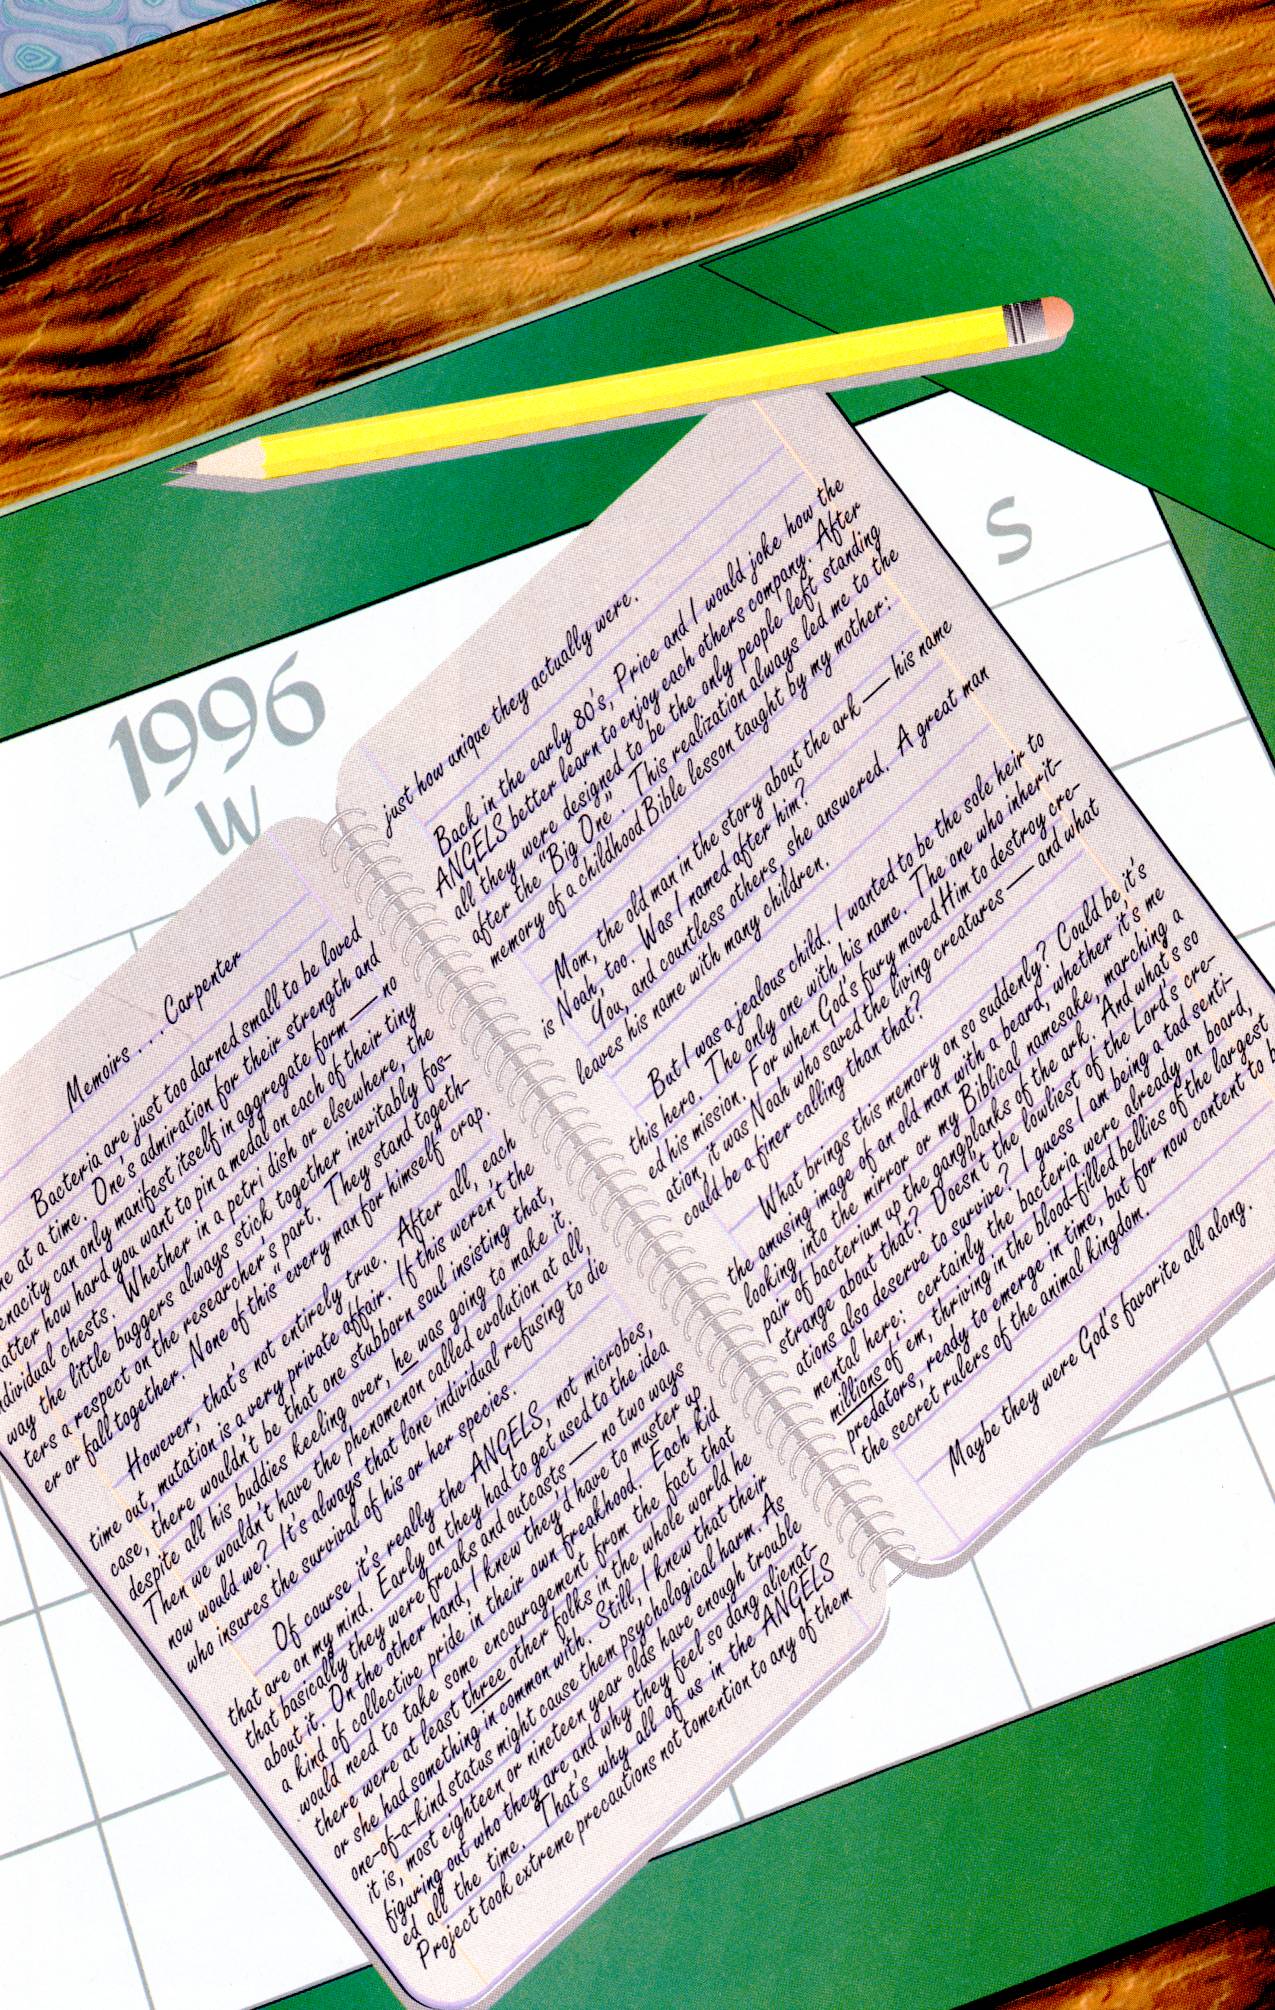 1996
W
S
Memoirs . . . Carpenter
Bacteria are just too darned small to be loved
one at a time. One's admiration for their strength and
tenacity can only manifest itself in aggregate form — no
matter how hard you want to pin a medal on each of their tiny
individual chests. Whether in a petri dish or elsewhere, the
way the little buggers always stick together inevitably fos-
ters a respect on the researcher's part. They stand togeth-
er or fall together. None of this "every man for himself" crap.
However, that's not entirely true. After all, each
time out, mutation is a very private affair. If this weren't the
case, there wouldn't be that one stubborn soul insisting that,
despite all his buddies keeling over, he was going to make it.
Then we wouldn't have the phenomenon called evolution at all,
now would we? It's always that lone individual refusing to die
who insures the survival of his or her species.
Of course it's really the ANGELS, not microbes,
that are on my mind. Early on they had to get used to the idea
that basically they were freaks and outcasts — no two ways
about it. On the other hand, I knew they'd have to muster up
a kind of collective pride in their own freakhood. Each kid
would need to take some encouragement from the fact that
there were at least three other folks in the whole world he
or she had something in common with. Still, I knew that their
one-of-a-kind status might cause them psychological harm. As
it is, most eighteen or nineteen year olds have enough trouble
figuring out who they are and why they feel so dang alienat-
ed all the time. That's why all of us in the ANGELS
Project took extreme precautions not tomention to any of them
just how unique they actually were.
Back in the early 80's, Price and I would joke how the
ANGELS better learn to enjoy each others company. After
all they were designed to be the only people left standing
after the "Big One". This realization always led me to the
memory of a childhood Bible lesson taught by my mother:
Mom, the old man in the story about the ark — his name
is Noah, too. Was I named after him?
You, and countless others, she answered. A great man
leaves his name with many children.
But I was a jealous child. I wanted to be the sole heir to
this hero. The only one with his name. The one who inherit-
ed his mission. For when God's fury moved Him to destroy cre-
ation, it was Noah who saved the living creatures — and what
could be a finer calling than that?
What brings this memory on so suddenly? Could be it's
the amusing image of an old man with a beard, whether it's me
looking into the mirror or my Biblical namesake, marching a
pair of bacterium up the gangplanks of the ark. And what's so
strange about that? Doesn't the lowliest of the Lord's cre-
ations also deserve to survive? I guess I am being a tad senti-
mental here: certainly the bacteria were already on board,
millions of 'em, thriving in the blood-filled bellies of the largest
predators, ready to emerge in time, but for now content to
the secret rulers of the animal kingdom.
Maybe they were God's favorite all along.